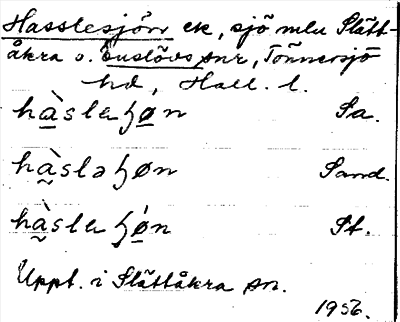 Hasslesjön ek, sjö mlu Slätt-
åkra o. Enslövs snr, Tönnersjö
hd, Hall. l.
hàsleɧøn Sa.
hàsləɧøn Sand.
hàsleɧøn St.
Uppt. i Slättåkra sn.
1956.